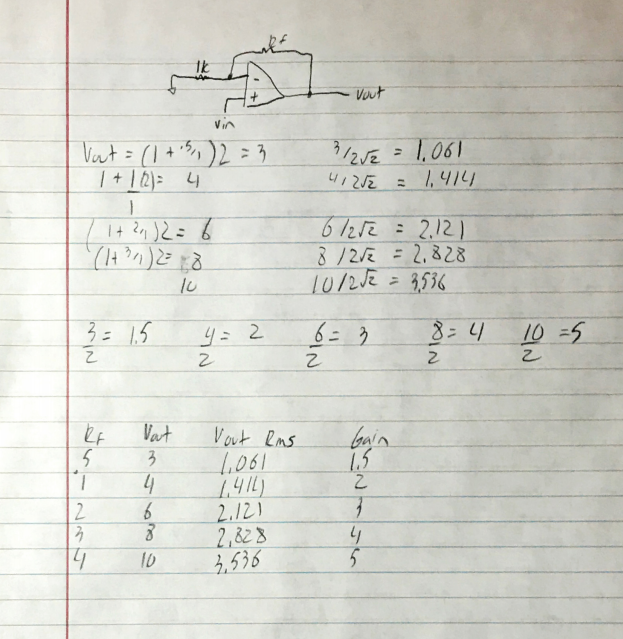 Rf
1k
-
+
Vout
Vin
Vout = (1 + .5/1)2 = 3    3/2√2 = 1.061
1 + 1/1 (2) = 4    4/2√2 = 1.414
(1 + 2/1)2 = 6    6/2√2 = 2.121
(1 + 3/1)2 = 8    8/2√2 = 2.828
10    10/2√2 = 3.536
3/2 = 1.5    4/2 = 2    6/2 = 3    8/2 = 4    10/2 = 5
RF    Vout    Vout Rms    Gain
.5    3    1.061    1.5
1    4    1.414    2
2    6    2.121    3
3    8    2.828    4
4    10    3.536    5